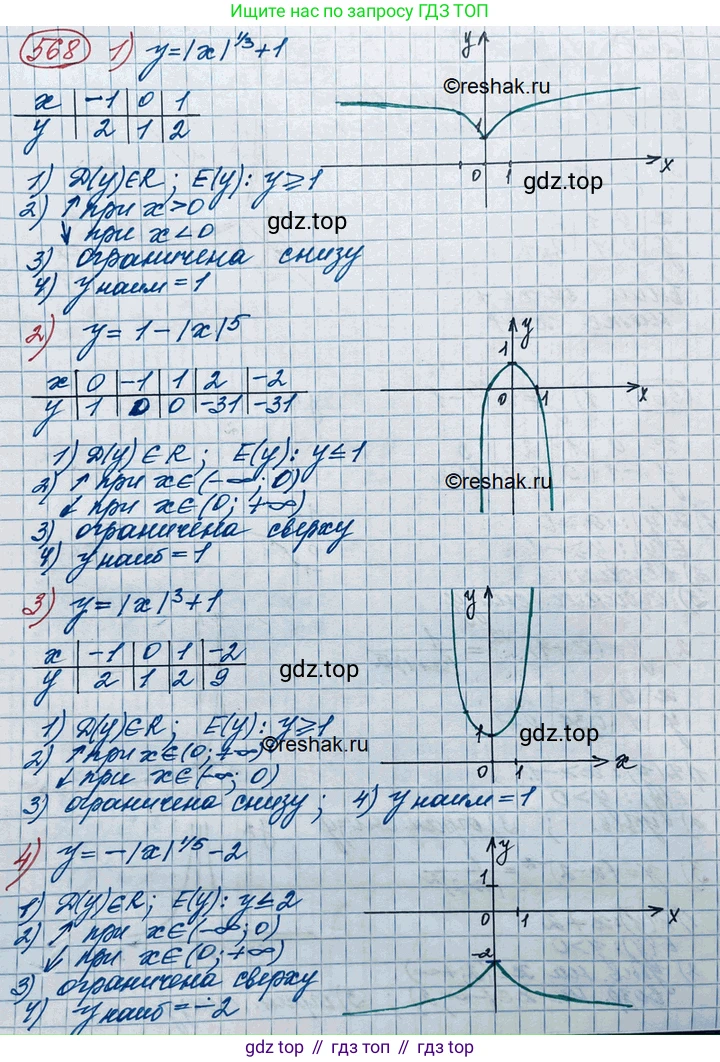 Ищите нас по запросу ГДЗ ТОП
568 1) y=|x|^1/3+1
x | -1 | 0 | 1
y | 2 | 1 | 2
y
1
0 1 x
©reshak.ru
gdz.top
1) D(y)∈R; E(y): y≥1
2) ↑ при x>0
↓ при x<0
gdz.top
3) ограничена снизу
4) y наим = 1
2) y = 1-|x|^5
x | 0 | -1 | 1 | 2 | -2
y | 1 | 0 | 0 | -31 | -31
y
1
0 1 x
1) D(y)∈R; E(y): y≤1
2) ↑ при x∈(-∞; 0)
↓ при x∈(0; +∞)
©reshak.ru
3) ограничена сверху
4) y наиб = 1
3) y=|x|^3+1
x | -1 | 0 | 1 | -2
y | 2 | 1 | 2 | 9
gdz.top
y
1
0 1 x
gdz.top
1) D(y)∈R; E(y): y≥1
2) ↑ при x∈(0; +∞)
↓ при x∈(-∞; 0)
©reshak.ru
3) ограничена снизу; 4) y наим = 1
4) y=-|x|^1/5-2
y
1
0 1 x
-2
1) D(y)∈R; E(y): y≤2
2) ↑ при x∈(-∞; 0)
↓ при x∈(0; +∞)
3) ограничена сверху
4) y наиб = -2
gdz.top // гдз.топ // gdz.top